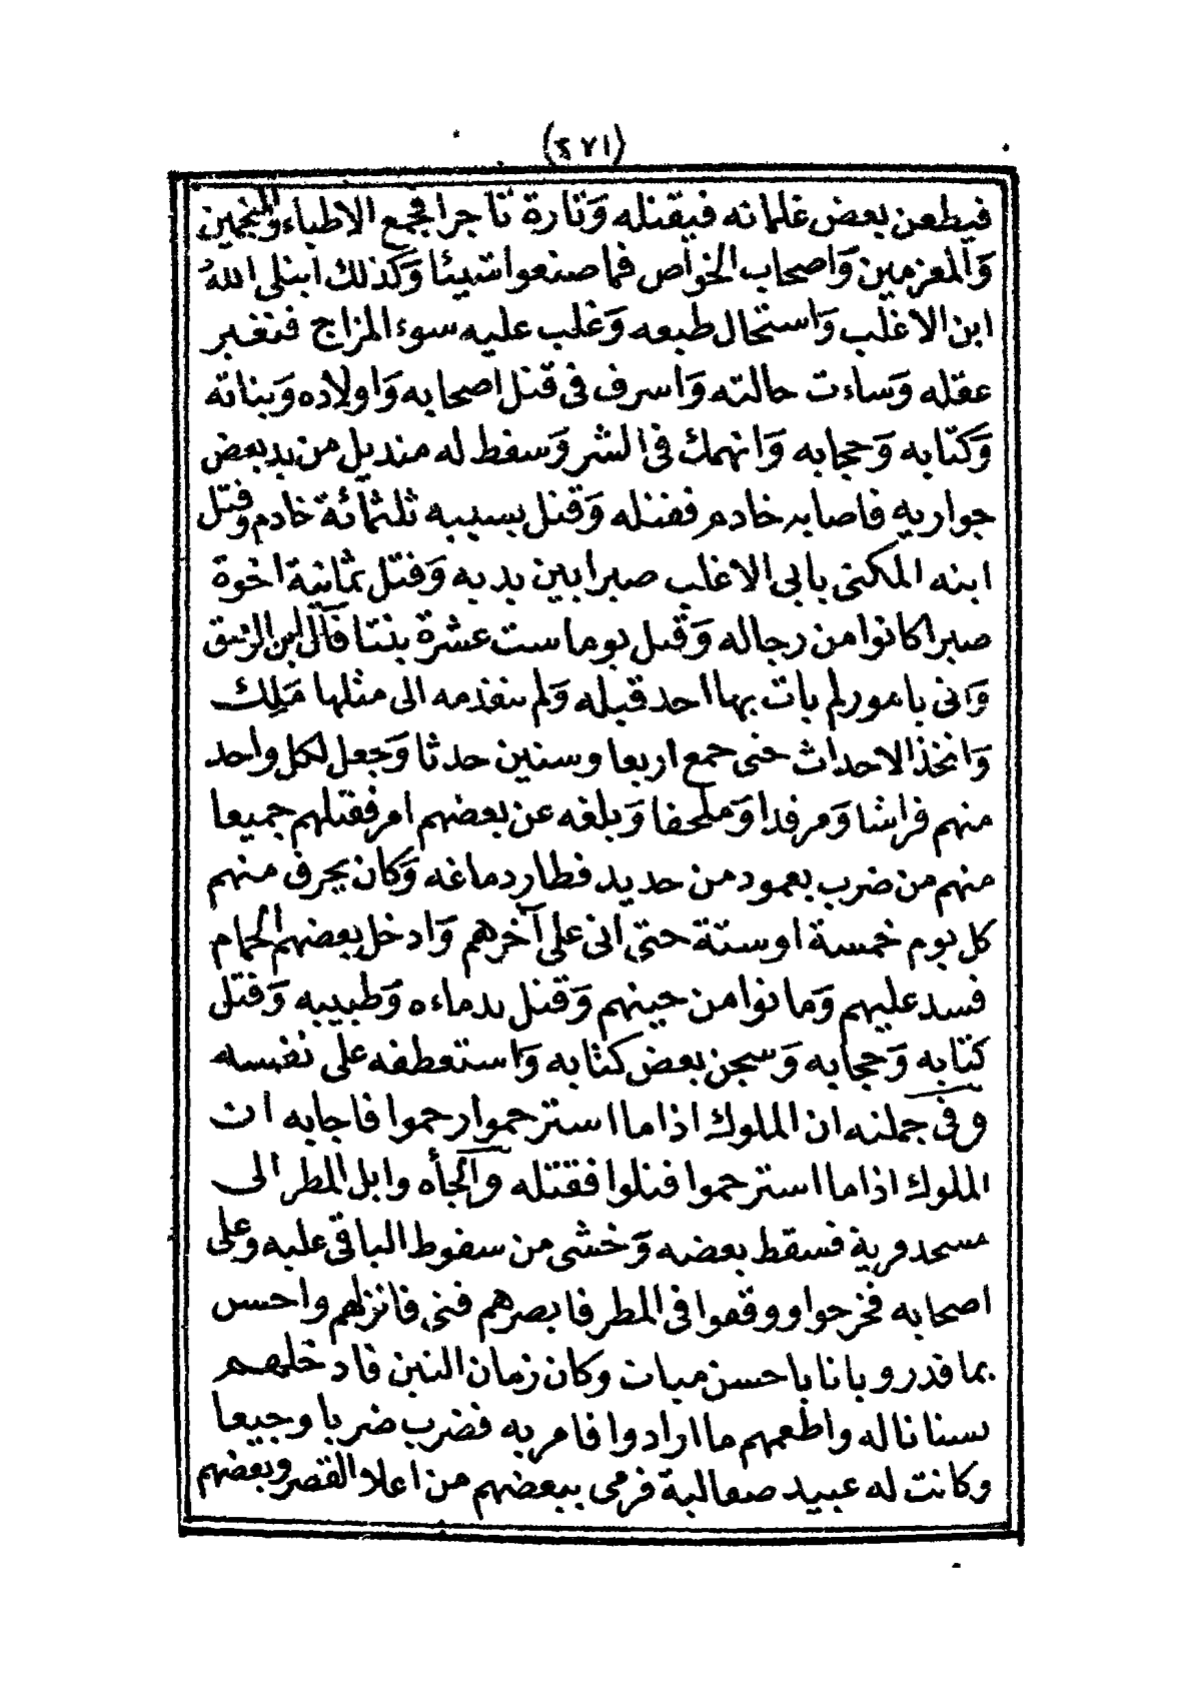 (٤٧١)
فيطعن بعض غلمانه فيقتله وتارة تاجرا فجمع الاطباء والمنجمين
والمعزمين واصحاب الخواص فما صنعوا شيئا وكذلك ابتلى الله
ابن الاغلب واستحال طبعه وغلب عليه سوء المزاج فتغير
عقله وساءت حالته واسرف في قتل اصحابه واولاده وبناته
وكتابه وحجابه وانهمك في الشر وسقط له منديل من يد بعض
جواريه فاصابه خادم فقتله وقتل بسببه ثلثمائة خادم وقتل
ابنه المكنى بابى الاغلب صبرا بين يديه وقتل ثمانية اخوة
صبرا كانوا من رجاله وقتل يوما ست عشرة بنتا قال ابن الرشيق
واتى بامور لم يات بها احد قبله ولم يتقدمه الى مثلها ملك
واتخذ الاحداث حتى جمع اربعا وستين حدثا وجعل لكل واحد
منهم فراشا ومرفدا وملحفا وبلغه عن بعضهم امر فقتلهم جميعا
منهم من ضرب بعمود من حديد فطار دماغه وكان يحرق منهم
كل يوم خمسة او ستة حتى اتى على آخرهم وادخل بعضهم الحمام
فسد عليهم وماتوا من حينهم وقتل ندماءه وطبيبه وقتل
كتابه وحجابه وسجن بعض كتابه واستعطفه على نفسه
وفى جملته ان الملوك اذا ما استرحموا رحموا فاجابه ان
الملوك اذا ما استرحموا قتلوا فقتله والجأه وابل المطر الى
مسجد قرية فسقط بعضه وخشى من سقوط الباقى عليه وعلى
اصحابه فخرجوا ووقفوا فى المطر فابصرهم فتى فانزلهم واحسن
بما قدر وباتا باحسن مبات وكان زمان التين فادخلهم
بستانا له واطعمهم ما ارادوا فامر به فضرب ضربا وجيعا
وكانت له عبيد صقالبة فرمى ببعضهم من اعلا القصر وبعضهم